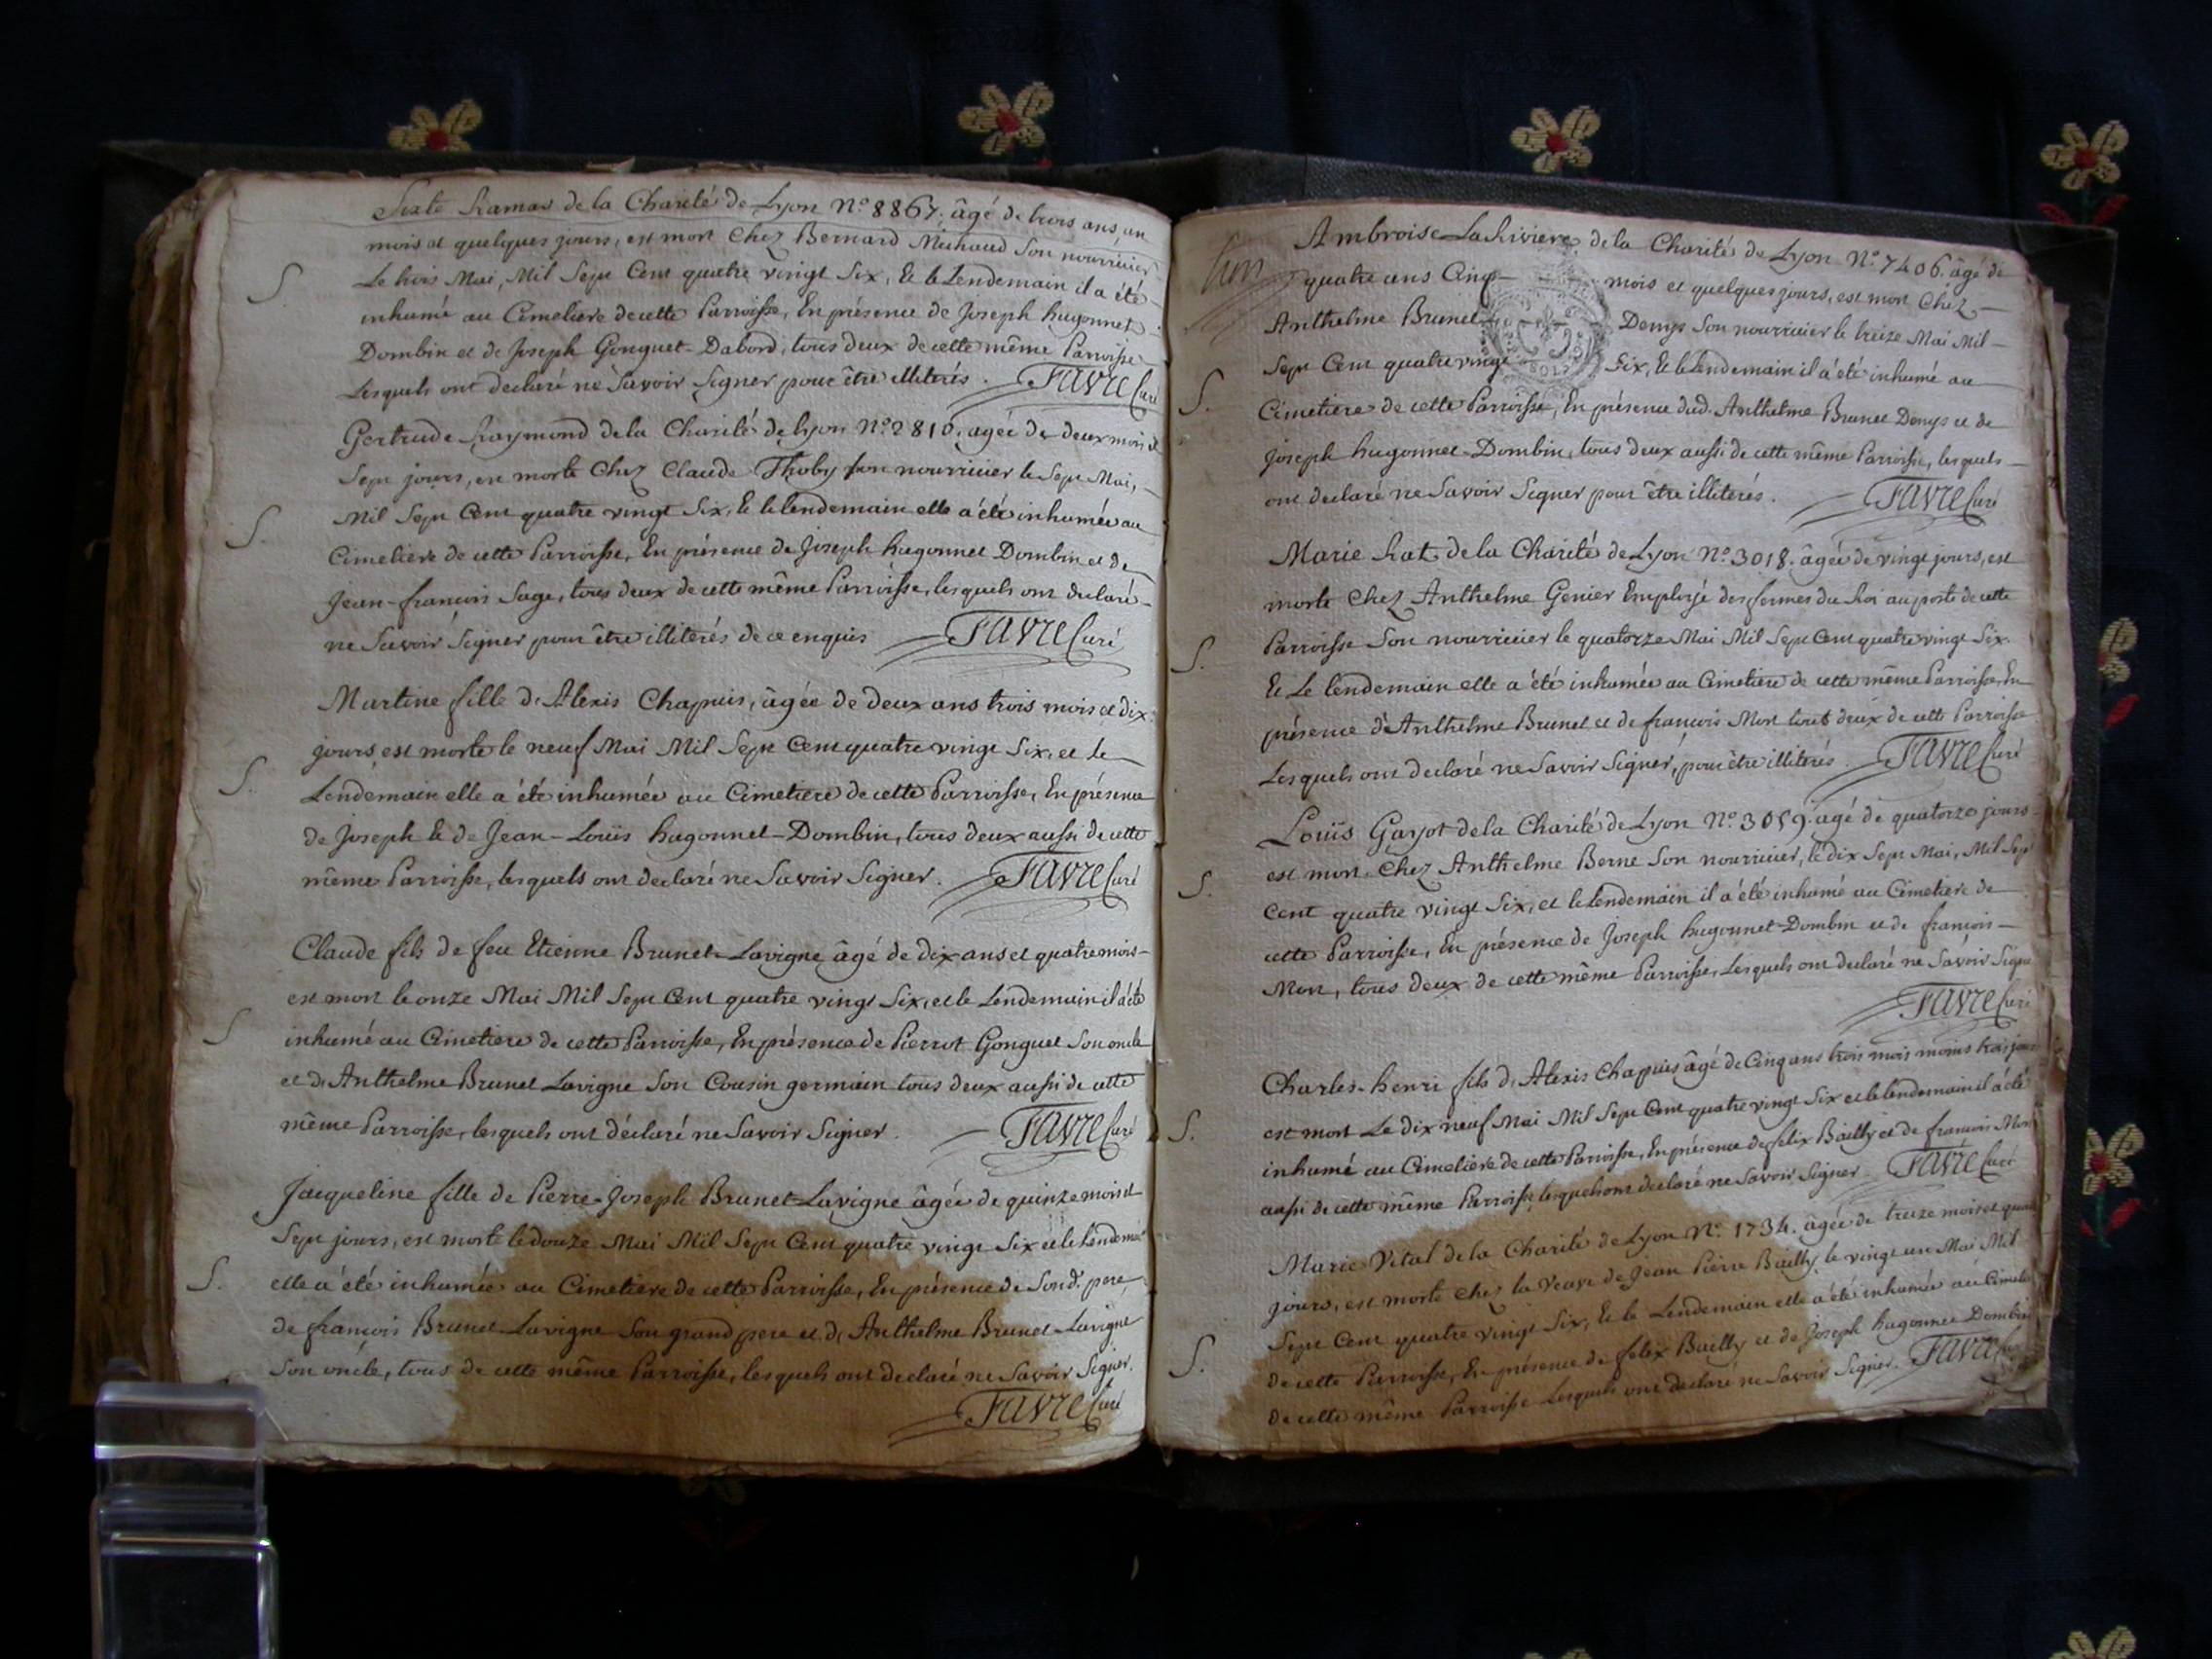 Sixte Ramas de la Charité de Lyon N° 8867. âgé de trois ans un
mois et quelques jours, est mort Chez Bernard Michaud Son nourricier
Le trois Mai, Mil Sept Cent quatre vingt Six, Et le Lendemain il a été
S. inhumé au Cimetiere de cette Parroisse, En présence de Joseph hugonnet
Dombin et de Joseph Gonguet-Dabord, tous deux de cette même Parroisse
Lesquels ont declaré ne Savoir Signer pour être illiterés. FAVRE Curé
Gertrude Raymond de la Charité de Lyon N° 2810. agée de deux mois et
Sept jours, est morte Chez Claude Thoby Son nourricier le Sept Mai,
S. Mil Sept Cent quatre vingt Six, Et le lendemain elle a été inhumée au
Cimetiere de cette Parroisse, En présence de Joseph hugonnet Dombin et de
Jean-françois Sage, tous deux de cette même Parroisse, lesquels ont declaré
ne Savoir Signer pour être illiterés de ce enquis FAVRE Curé
Martine fille d'Alexis Chapuis, âgée de deux ans trois mois et dix
jours, est morte le neuf Mai Mil Sept Cent quatre vingt Six, et le
S. Lendemain elle a été inhumée au Cimetiere de cette Parroisse, En présence
de Joseph Et de Jean-Louïs hugonnet-Dombin, tous deux aussi de cette
même Parroisse, lesquels ont declaré ne Savoir Signer. FAVRE Curé
Claude fils de feu Etienne Brunet-Lavigne âgé de dix ans et quatre mois
est mort le onze Mai Mil Sept Cent quatre vingt Six, et le Lendemain il a été
S inhumé au Cimetiere de cette Parroisse, En présence de Pierrot Gonguet Son oncle
et d'Anthelme Brunet Lavigne Son Cousin germain tous deux aussi de cette
même Parroisse, lesquels ont déclaré ne Savoir Signer. FAVRE Curé
Jacqueline fille de Pierre-Joseph Brunet-Lavigne âgée de quinze mois et
Sept jours, est morte le douze Mai Mil Sept Cent quatre vingt Six et le lendemain
S. elle a été inhumée au Cimetiere de cette Parroisse, En présence de Son d. pere,
de françois Brunet-Lavigne Son grand pere et d'Anthelme Brunet-Lavigne
Son oncle, tous de cette même Parroisse, lesquels ont declaré ne Savoir Signer.
FAVRE Curé
Ambroise LaRiviere de la Charité de Lyon N° 7406. âgé de
quatre ans Cinq mois et quelques jours, est mort Chez
Anthelme Brunet Denys Son nourricier le treize Mai Mil
Sept Cent quatre vingt Six, Et le Lendemain il a été inhumé au
S. Cimetiere de cette Parroisse, En présence dud. Anthelme Brunet Denys et de
joseph hugonnet-Dombin, tous deux aussi de cette même Parroisse, lesquels
ont declaré ne Savoir Signer pour être illiterés. FAVRE Curé
Marie Rat de la Charité de Lyon N° 3018. âgée de vingt jours, est
morte Chez Anthelme Genier Employé des fermes du Roi au poste de cette
S. Parroisse Son nourricier le quatorze Mai Mil Sept Cent quatre vingt Six.
Et Le lendemain elle a été inhumée au Cimetiere de cette même Parroisse, En
présence d'Anthelme Brunet et de françois Mort tous deux de cette Parroisse
Lesquels ont declaré ne Savoir Signer, pour être illiterés. FAVRE Curé
Louïs Gayot de la Charité de Lyon N° 3059. âgé de quatorze jours
est mort Chez Anthelme Berne Son nourricier, le dix Sept Mai, Mil Sept
S. Cent quatre vingt Six, et le Lendemain il a été inhumé au Cimetiere de
cette Parroisse, En présence de Joseph hugonnet-Dombin et de françois
Mort, tous deux de cette même Parroisse, Lesquels ont declaré ne Savoir Signer
FAVRE Curé
Charles-henri fils d'Alexis Chapuis âgé de Cinq ans trois mois moins trois jours
S. est mort Le dix neuf Mai Mil Sept Cent quatre vingt Six et le lendemain il a été
inhumé au Cimetiere de cette Parroisse, En présence de felix Bailly et de françois Mort
aussi de cette même Parroisse, lesquels ont declaré ne Savoir Signer. FAVRE Curé
Marie Vital de la Charité de Lyon N° 1734. âgée de treize mois et quatre
jours, est morte chez la Veuve de Jean Pierre Bailly, le vingt un Mai Mil
Sept Cent quatre vingt Six, Et le Lendemain elle a été inhumée au Cimetiere
S. de cette Parroisse, En présence de felix Bailly et de Joseph hugonnet Dombin
de cette même Parroisse Lesquels ont declaré ne Savoir Signer. FAVRE Curé